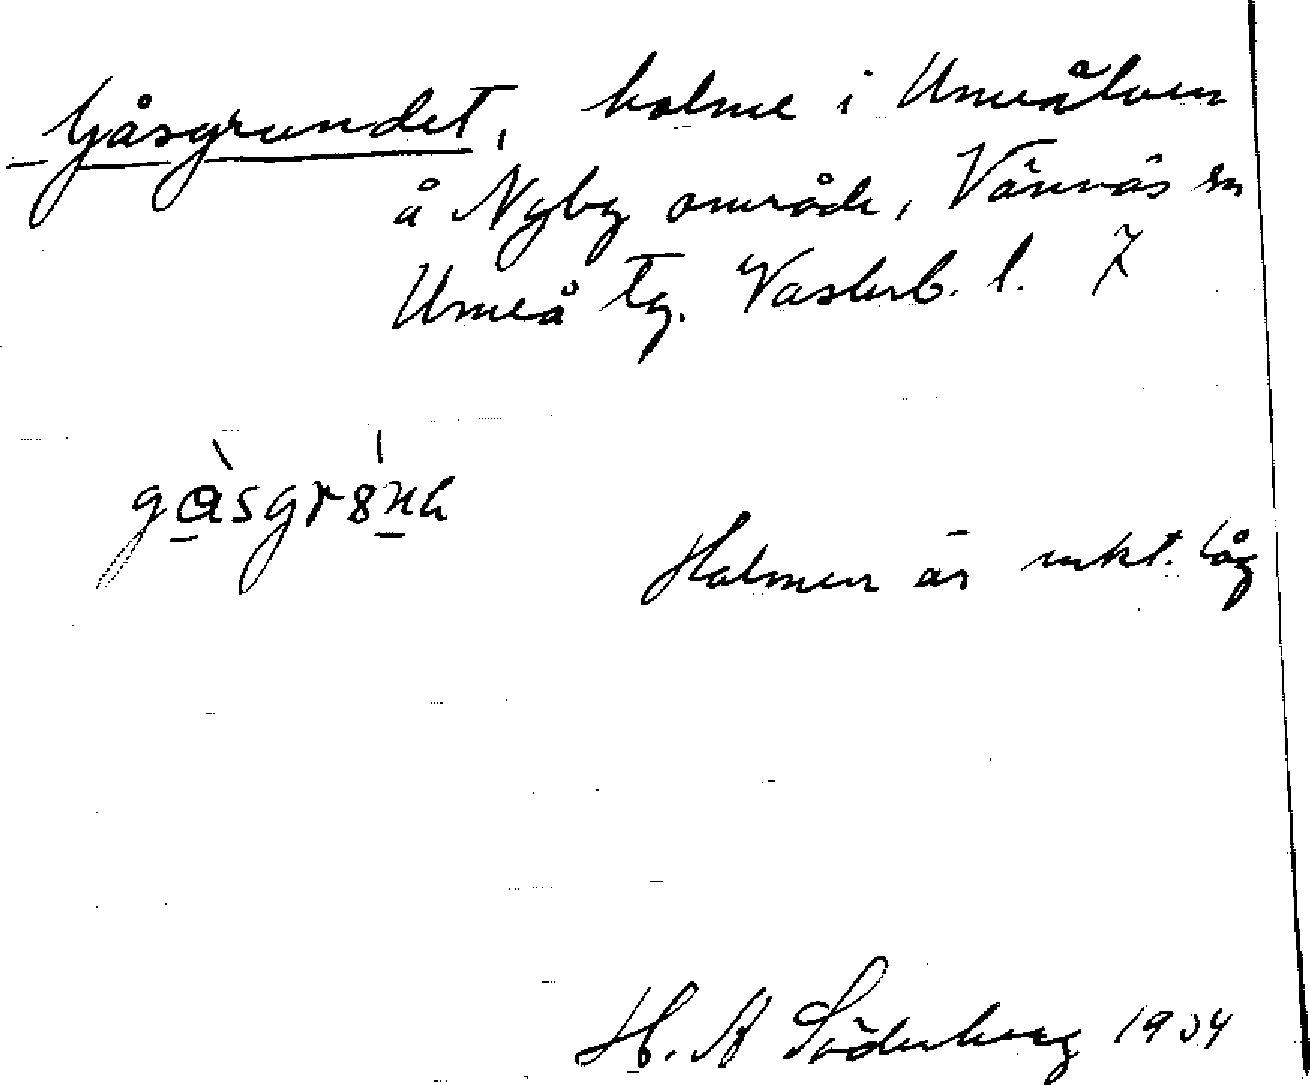 Gåsgrundet, holme i Umeälven
å Nyby område, Vännäs sn
Umeå tg. Västerb. l. 7
gàsgrón
Holmen är mkt. låg
H. A Söderberg 1934